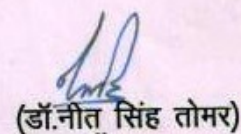 (डॉ.नीत सिंह तोमर)